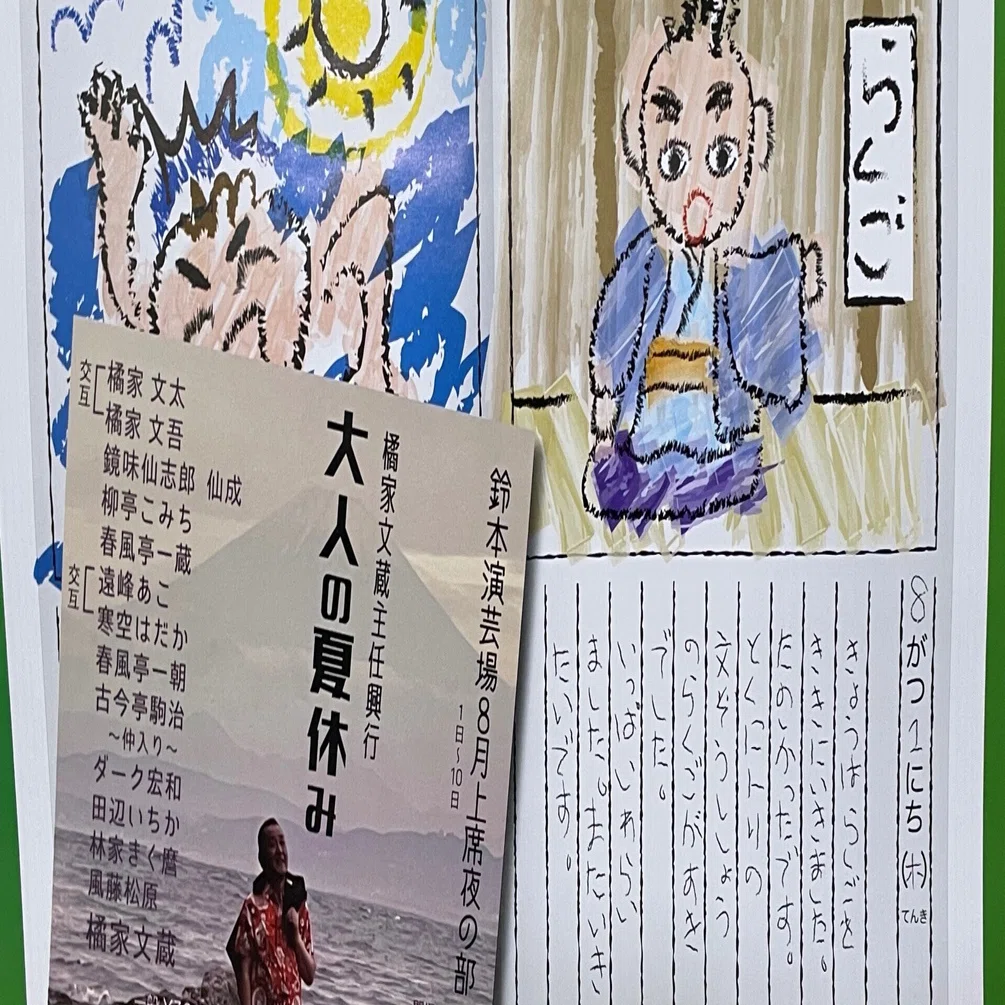 らくご
8がつ1にち(木)
てんき
きょうは らくごを
ききにいきました。
たのしかったです。
とくにトリの
文ぞうししょう
のらくごがすき
でした。
いっぱいわらい
ました。またいき
たいです。
鈴本演芸場8月上席夜の部
1日~10日
橘家文蔵主任興行
大人の夏休み
交互
橘家 文太
橘家 文吾
鏡味仙志郎 仙成
柳亭こみち
春風亭一蔵
交互
遠峰あこ
寒空はだか
春風亭一朝
古今亭駒治
~仲入り~
ダーク宏和
田辺いちか
林家きく麿
風藤松原
橘家文蔵